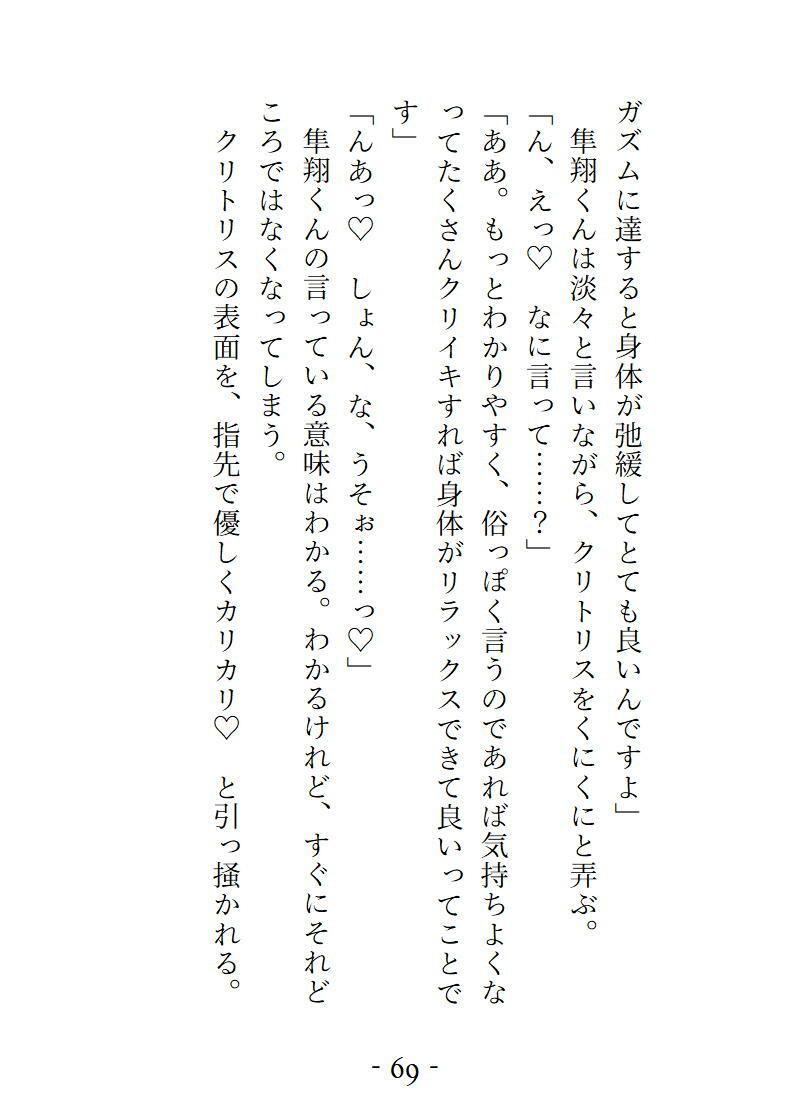 ガズムに達すると身体が弛緩してとても良いんですよ」
　隼翔くんは淡々と言いながら、クリトリスをくにくにと弄ぶ。
「ん、えっ♡　なに言って……？」
「ああ。もっとわかりやすく、俗っぽく言うのであれば気持ちよくな
ってたくさんクリイキすれば身体がリラックスできて良いってことで
す」
「んあっ♡　しょん、な、うそぉ……っ♡」
　隼翔くんの言っている意味はわかる。わかるけれど、すぐにそれど
ころではなくなってしまう。
　クリトリスの表面を、指先で優しくカリカリ♡　と引っ掻かれる。
- 69 -